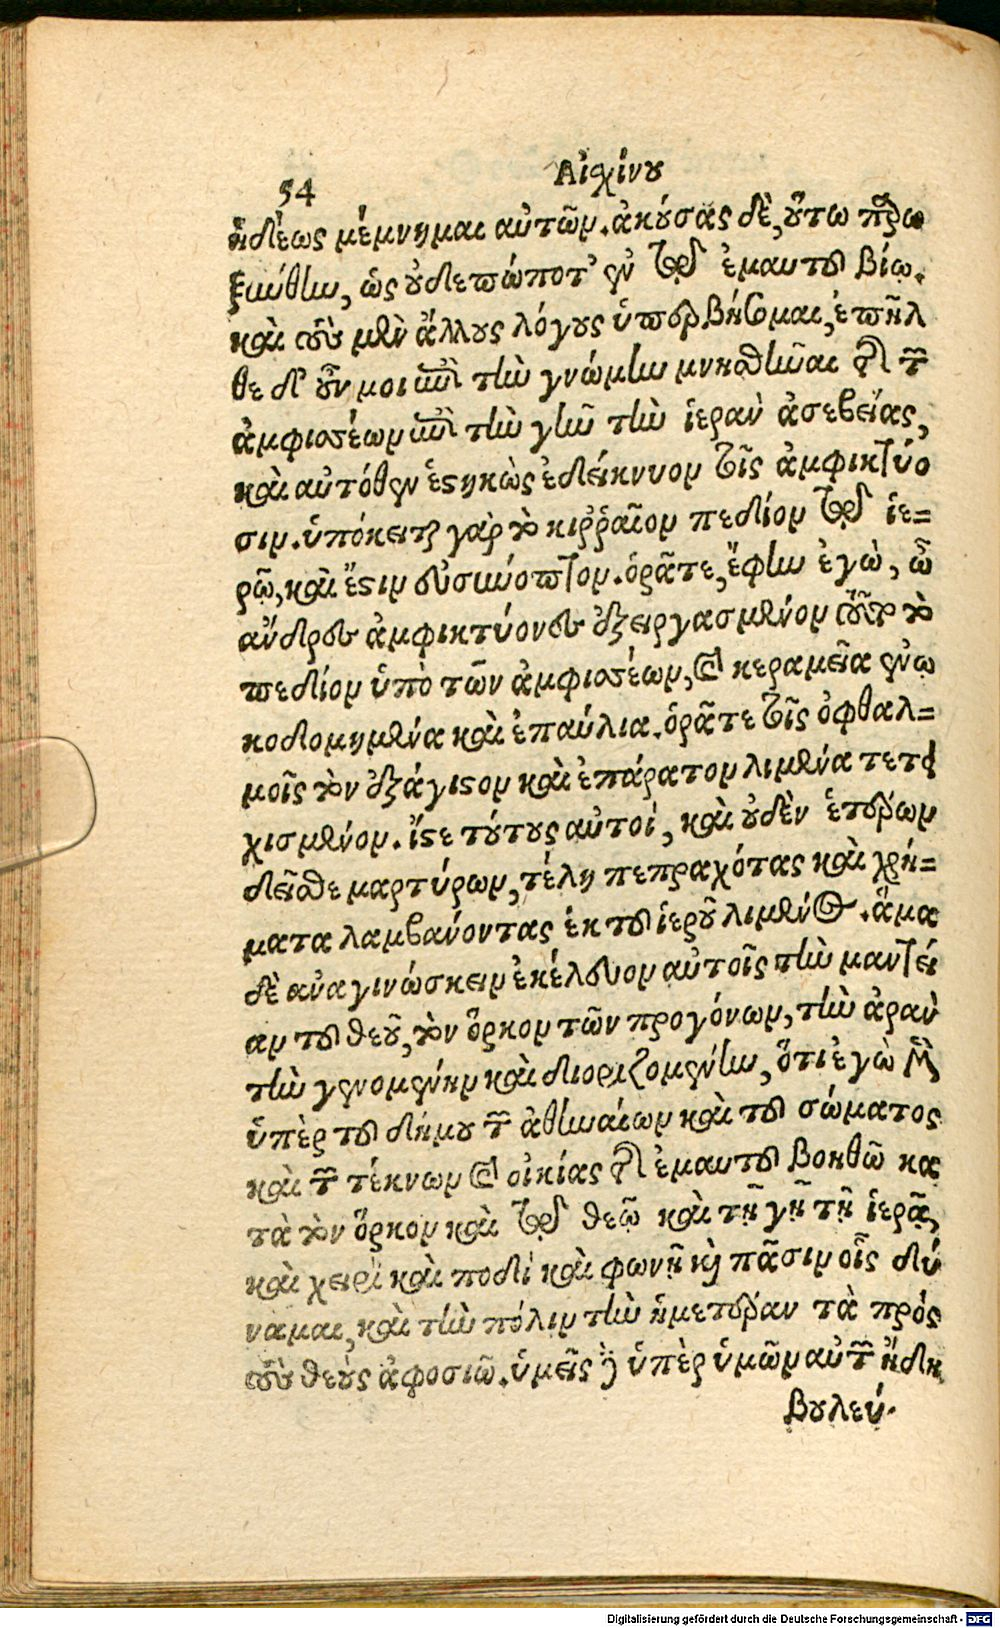 54
Αἰσχίνου
ἡδέως μέμνημαι αὐτῶν. ἀκούσας δὲ, οὕτω παρω
ξύνθην, ὡς οὐδεπώποτ' ἐν τῷ ἐμαυτοῦ βίῳ.
καὶ τοὺς μὲν ἄλλους λόγους ὑπερβήσομαι, ἐπῆλ
θε δ' οὖν μοι ἐπὶ τὴν γνώμην μνησθῆναι τῆς τῶν
ἀμφισσέων ἐπὶ τὴν γῆν τὴν ἱερὰν ἀσεβείας,
καὶ αὐτόθεν ἑστηκὼς ἐδείκνυον τοῖς ἀμφικτύο
σιν. ὑπόκειται γὰρ τὸ κιῤῥαῖον πεδίον τῷ ἱε=
ρῷ, καὶ ἔστιν εὐσύνοπτον. ὁρᾶτε, ἔφην ἐγὼ, ὦ
ἄνδρες ἀμφικτύονες ἐξειργασμένον τουτὶ τὸ
πεδίον ὑπὸ τῶν ἀμφισσέων, καὶ κεραμεῖα ἐνῳ
κοδομημένα καὶ ἐπαύλια. ὁρᾶτε τοῖς ὀφθαλ=
μοῖς τὸν ἐξάγιστον καὶ ἐπάρατον λιμένα τετει
χισμένον. ἴστε τούτους αὐτοί, καὶ οὐδὲν ἑτέρων
δεῖσθε μαρτύρων, τέλη πεπραχότας καὶ χρή=
ματα λαμβάνοντας ἐκ τοῦ ἱεροῦ λιμένος. ἅμα
δὲ ἀναγινώσκειν ἐκέλευον αὐτοῖς τὴν μαντεί
αν τοῦ θεοῦ, τὸν ὅρκον τῶν προγόνων, τὴν ἀρὰν
τὴν γενομένην καὶ διοριζομένην, ὅτι ἐγὼ μὲν
ὑπὲρ τοῦ δήμου τῶν ἀθηναίων καὶ τοῦ σώματος
καὶ τῶν τέκνων καὶ οἰκίας τῆς ἐμαυτοῦ βοηθῶ κα
τὰ τὸν ὅρκον καὶ τῷ θεῷ καὶ τῇ γῇ τῇ ἱερᾷ,
καὶ χειρὶ καὶ ποδὶ καὶ φωνῇ καὶ πᾶσιν οἷς δύ
ναμαι, καὶ τὴν πόλιν τὴν ἡμετέραν τὰ πρὸς
τοὺς θεοὺς ἀφοσιῶ. ὑμεῖς δὲ ὑπὲρ ὑμῶν αὐτῶν ἤδη
βουλεύ.
Digitalisierung gefördert durch die Deutsche Forschungsgemeinschaft - DFG